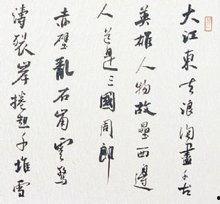 大江東去浪淘盡千古
英雄人物故壘西邊
人道是三國周郎
赤壁亂石崩雲驚
濤裂岸捲起千堆雪